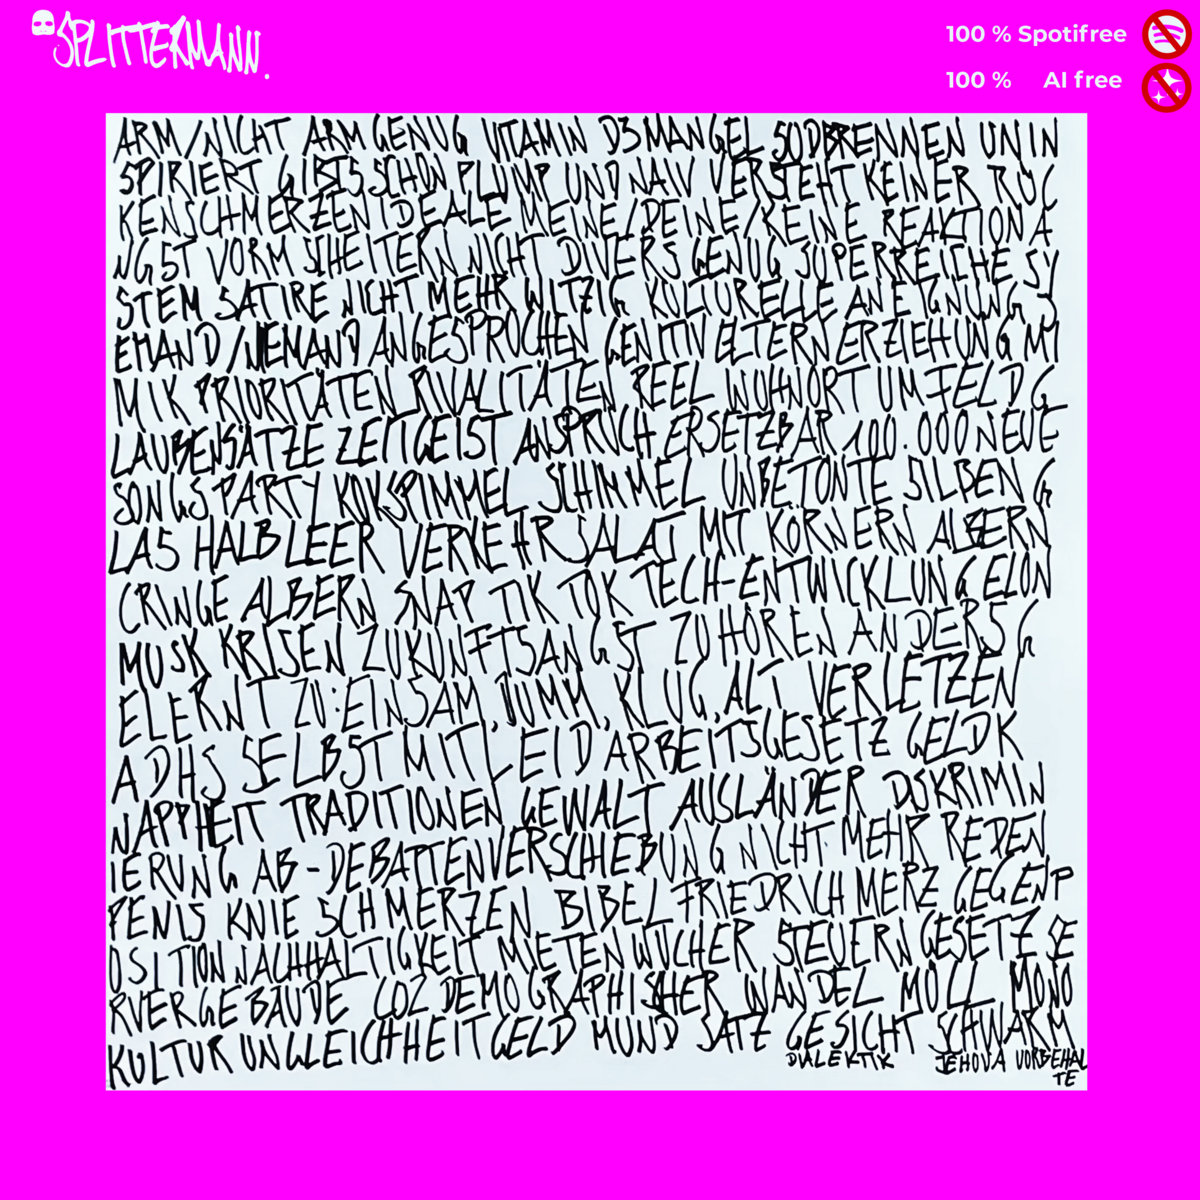 SPLITTERMANN.
100 % Spotifree
100 % AI free
ARM/NICHT ARM GENUG VITAMIN D3 MANGEL SODBRENNEN UNIN
SPIRIERT GIBTS SCHON PLUMP UND NAIV VERSTEHT KEINER RÜC
KENSCHMERZEN IDEALE MEINE/DEINE/KEINE REAKTION A
NGST VORM SCHEITERN NICHT DIVERS GENUG SUPERREICHE SY
STEM SATIRE NICHT MEHR WITZIG KULTURELLE ANEIGNUNG J
EMAND/NIEMAND ANGESPROCHEN GENITIV ELTERN ERZIEHUNG MI
MIK PRIORITÄTEN RIVALITÄTEN REEL WOHNORT UMFELD G
LAUBENSÄTZE ZEITGEIST ANSPRUCH ERSETZBAR 100.000 NEUE
SONGS PARTY KOKS PIMMEL SCHIMMEL UNBETONTE SILBEN G
LAS HALB LEER VERKEHR SALAT MIT KÖRNERN ALBERN
CRINGE ALBERN SNAP TIK TOK TECH-ENTWICKLUNG ELON
MUSK KRISEN ZUKUNFTSANGST ZUHÖREN ANDERS G
ELERNT ZU: EINSAM, DUMM, KLUG, ALT VERLETZEN
ADHS SELBSTMITLEID ARBEITSGESETZ GELDK
NAPPHEIT TRADITIONEN GEWALT AUSLÄNDER DISKRIMIN
IERUNG AB-DEBATTENVERSCHIEBUNG NICHT MEHR REDEN
PENIS KNIE SCHMERZEN BIBEL FRIEDRICH MERZ GEGENP
OSITION NACHHALTIGKEIT MIETEN WUCHER STEUERN GESETZ SE
RVERGEBÄUDE CO2 DEMOGRAPHISCHER WANDEL MOLL MONO
KULTUR UNGLEICHHEIT GELD MUND SATZ GESICHT SCHWARM
DIALEKTIK JEHOVA VORBEHAL
TE